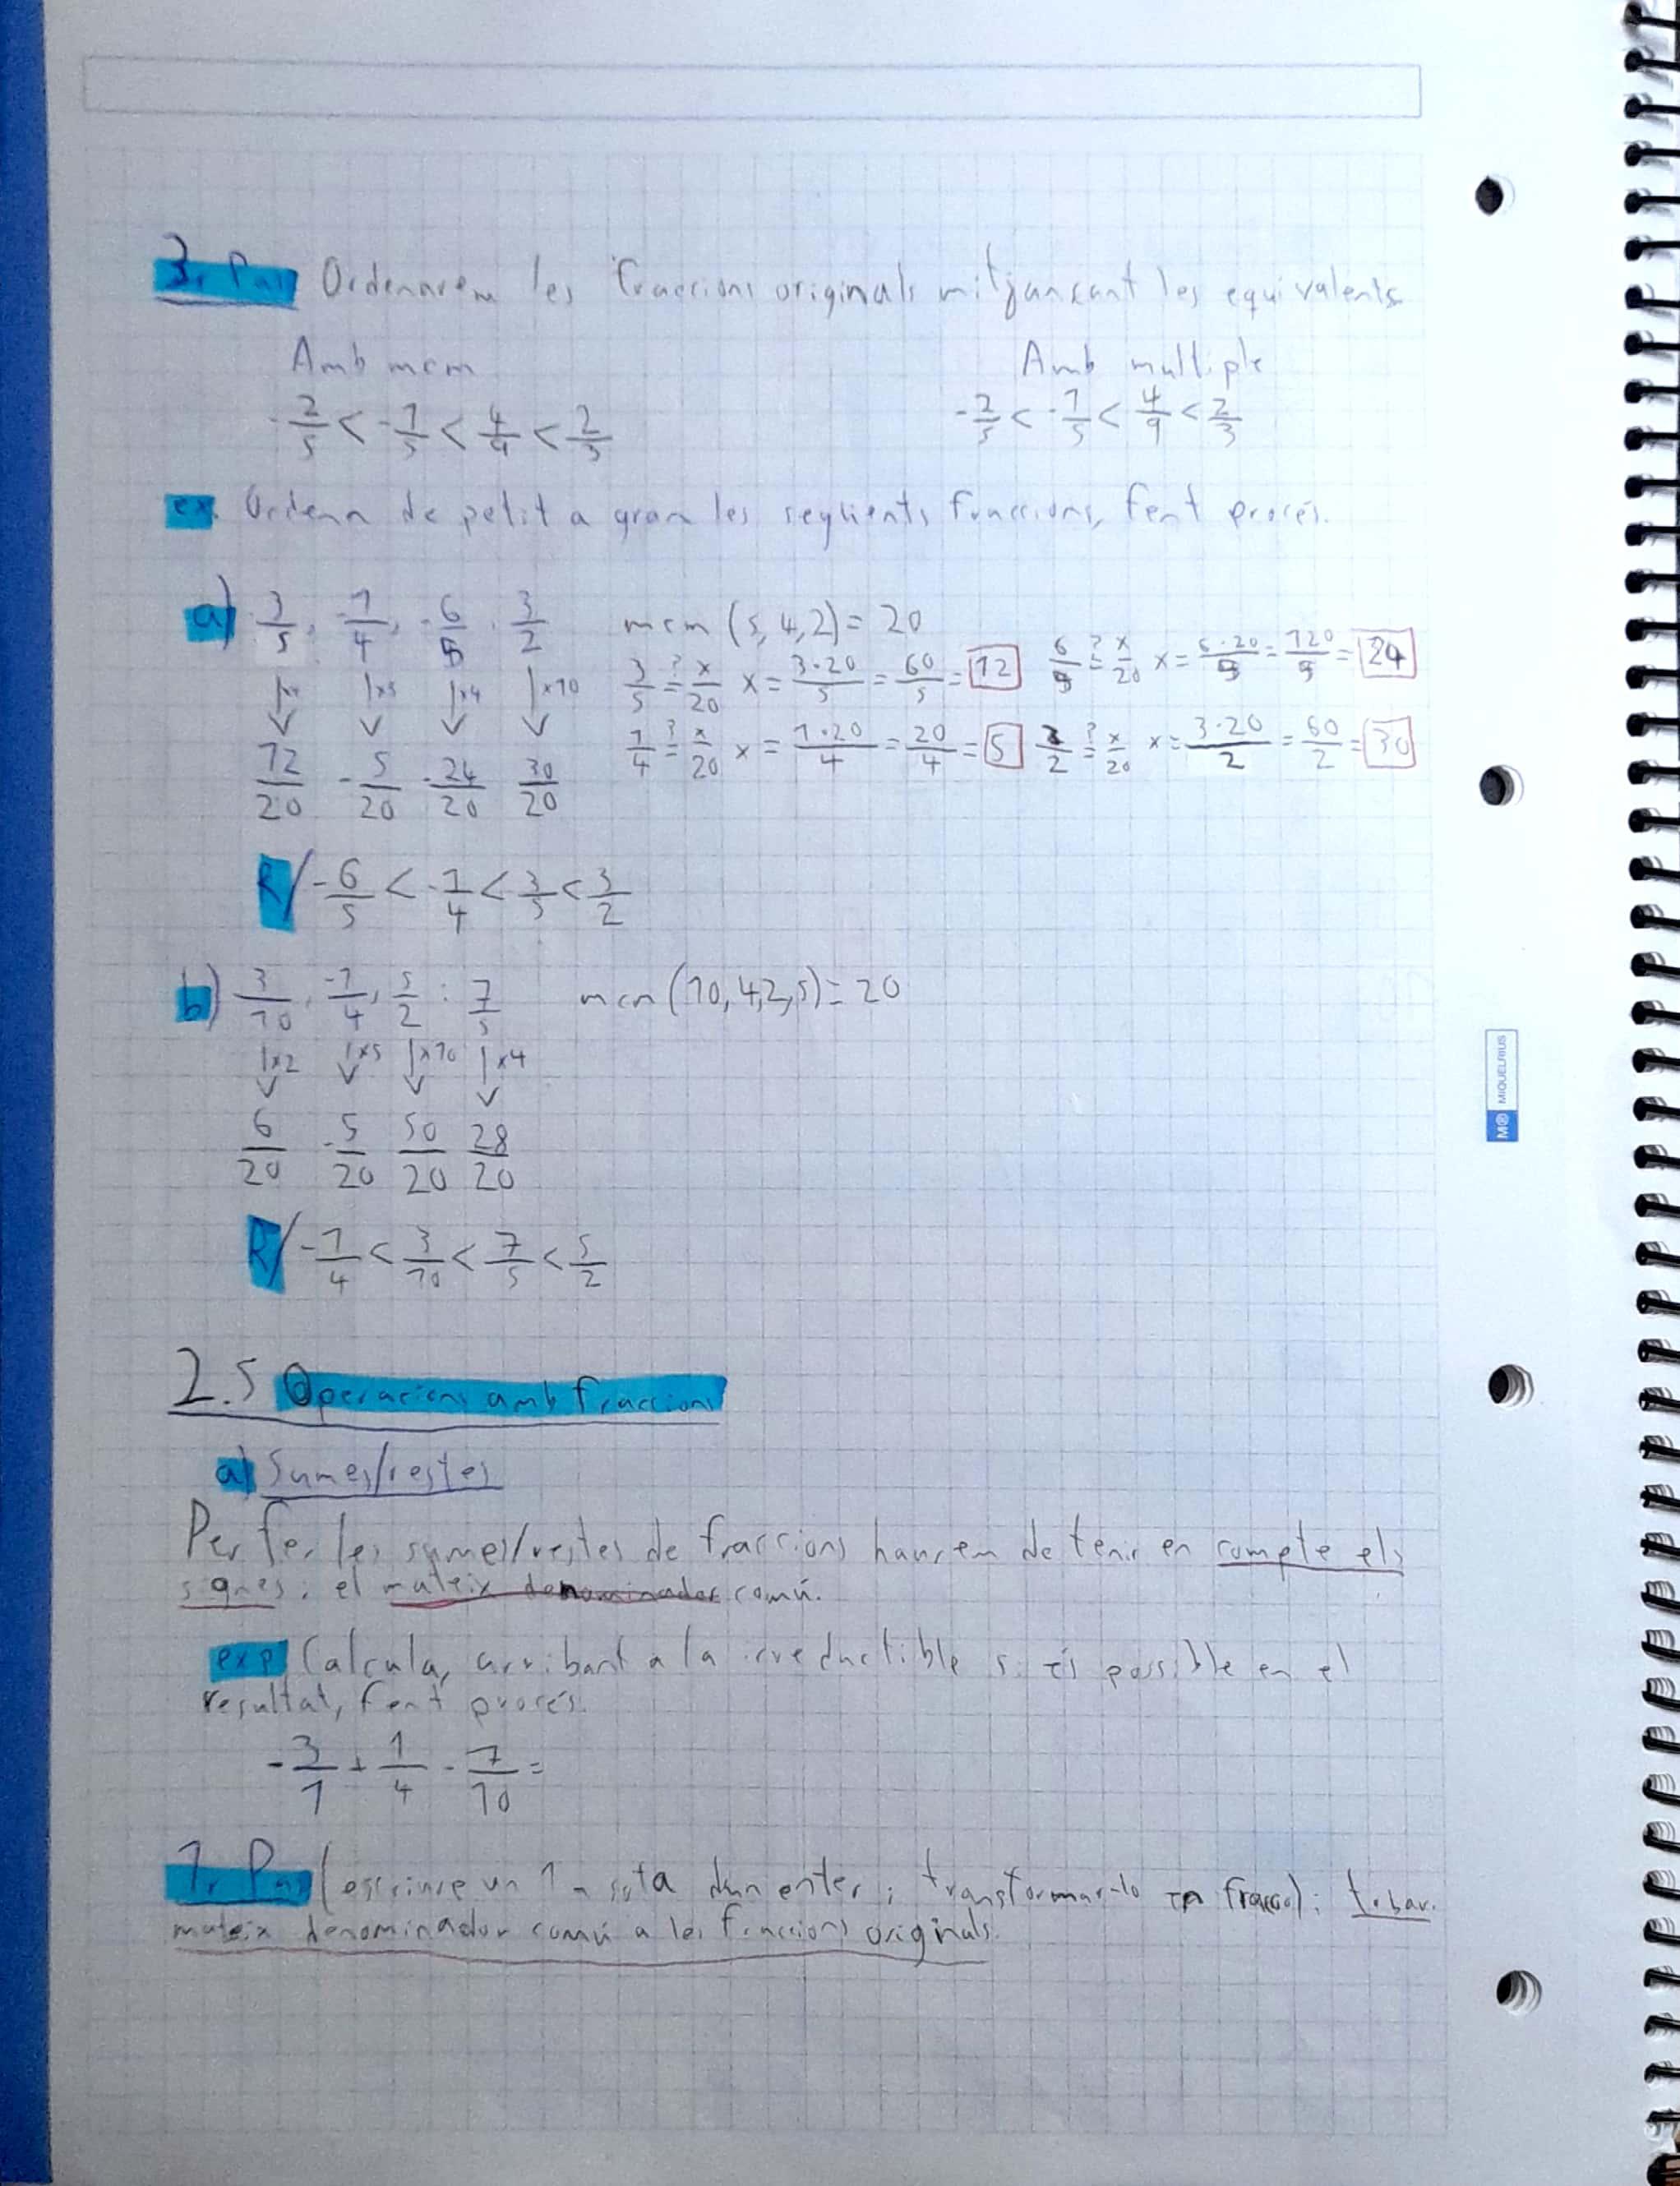 3r Pas Ordenarem les fraccions originals mitjançant les equivalents
Amb mcm Amb multiple
-2/5 < -1/5 < 4/9 < 2/3 -2/5 < -1/5 < 4/9 < 2/3
ex. Ordena de petit a gran les següents fraccions, fent procés.
a) 3/5, -1/4, -6/5, 3/2 mcm (5, 4, 2) = 20
3/5 ?= x/20 x = 3·20/5 = 60/5 = 12 6/5 ?= x/20 x = 6·20/5 = 120/5 = 24
×5 ×4 ×10
1/4 ?= x/20 x = 1·20/4 = 20/4 = 5 3/2 ?= x/20 x = 3·20/2 = 60/2 = 30
12/20 -5/20 -24/20 30/20
R/ -6/5 < -1/4 < 3/5 < 3/2
b) 3/10, -1/4, 5/2 i 7/5 mcm (10, 4, 2, 5) = 20
×2 ×5 ×10 ×4
6/20 -5/20 50/20 28/20
R/ -1/4 < 3/10 < 7/5 < 5/2
2.5 Operacions amb fraccions
a) Sumes/restes
Per fer les sumes/restes de fraccions haurem de tenir en compte els
signes i el mateix denominador comú.
exp Calcula, arribant a la irreductible si és possible en el
resultat, fent procés.
-3/1 + 1/4 - 7/10 =
1r Pas (escriure un 1 a sota d'un enter i transformar-lo en fracció) i trobar
mateix denominador comú a les fraccions originals.
MIQUELRIUS